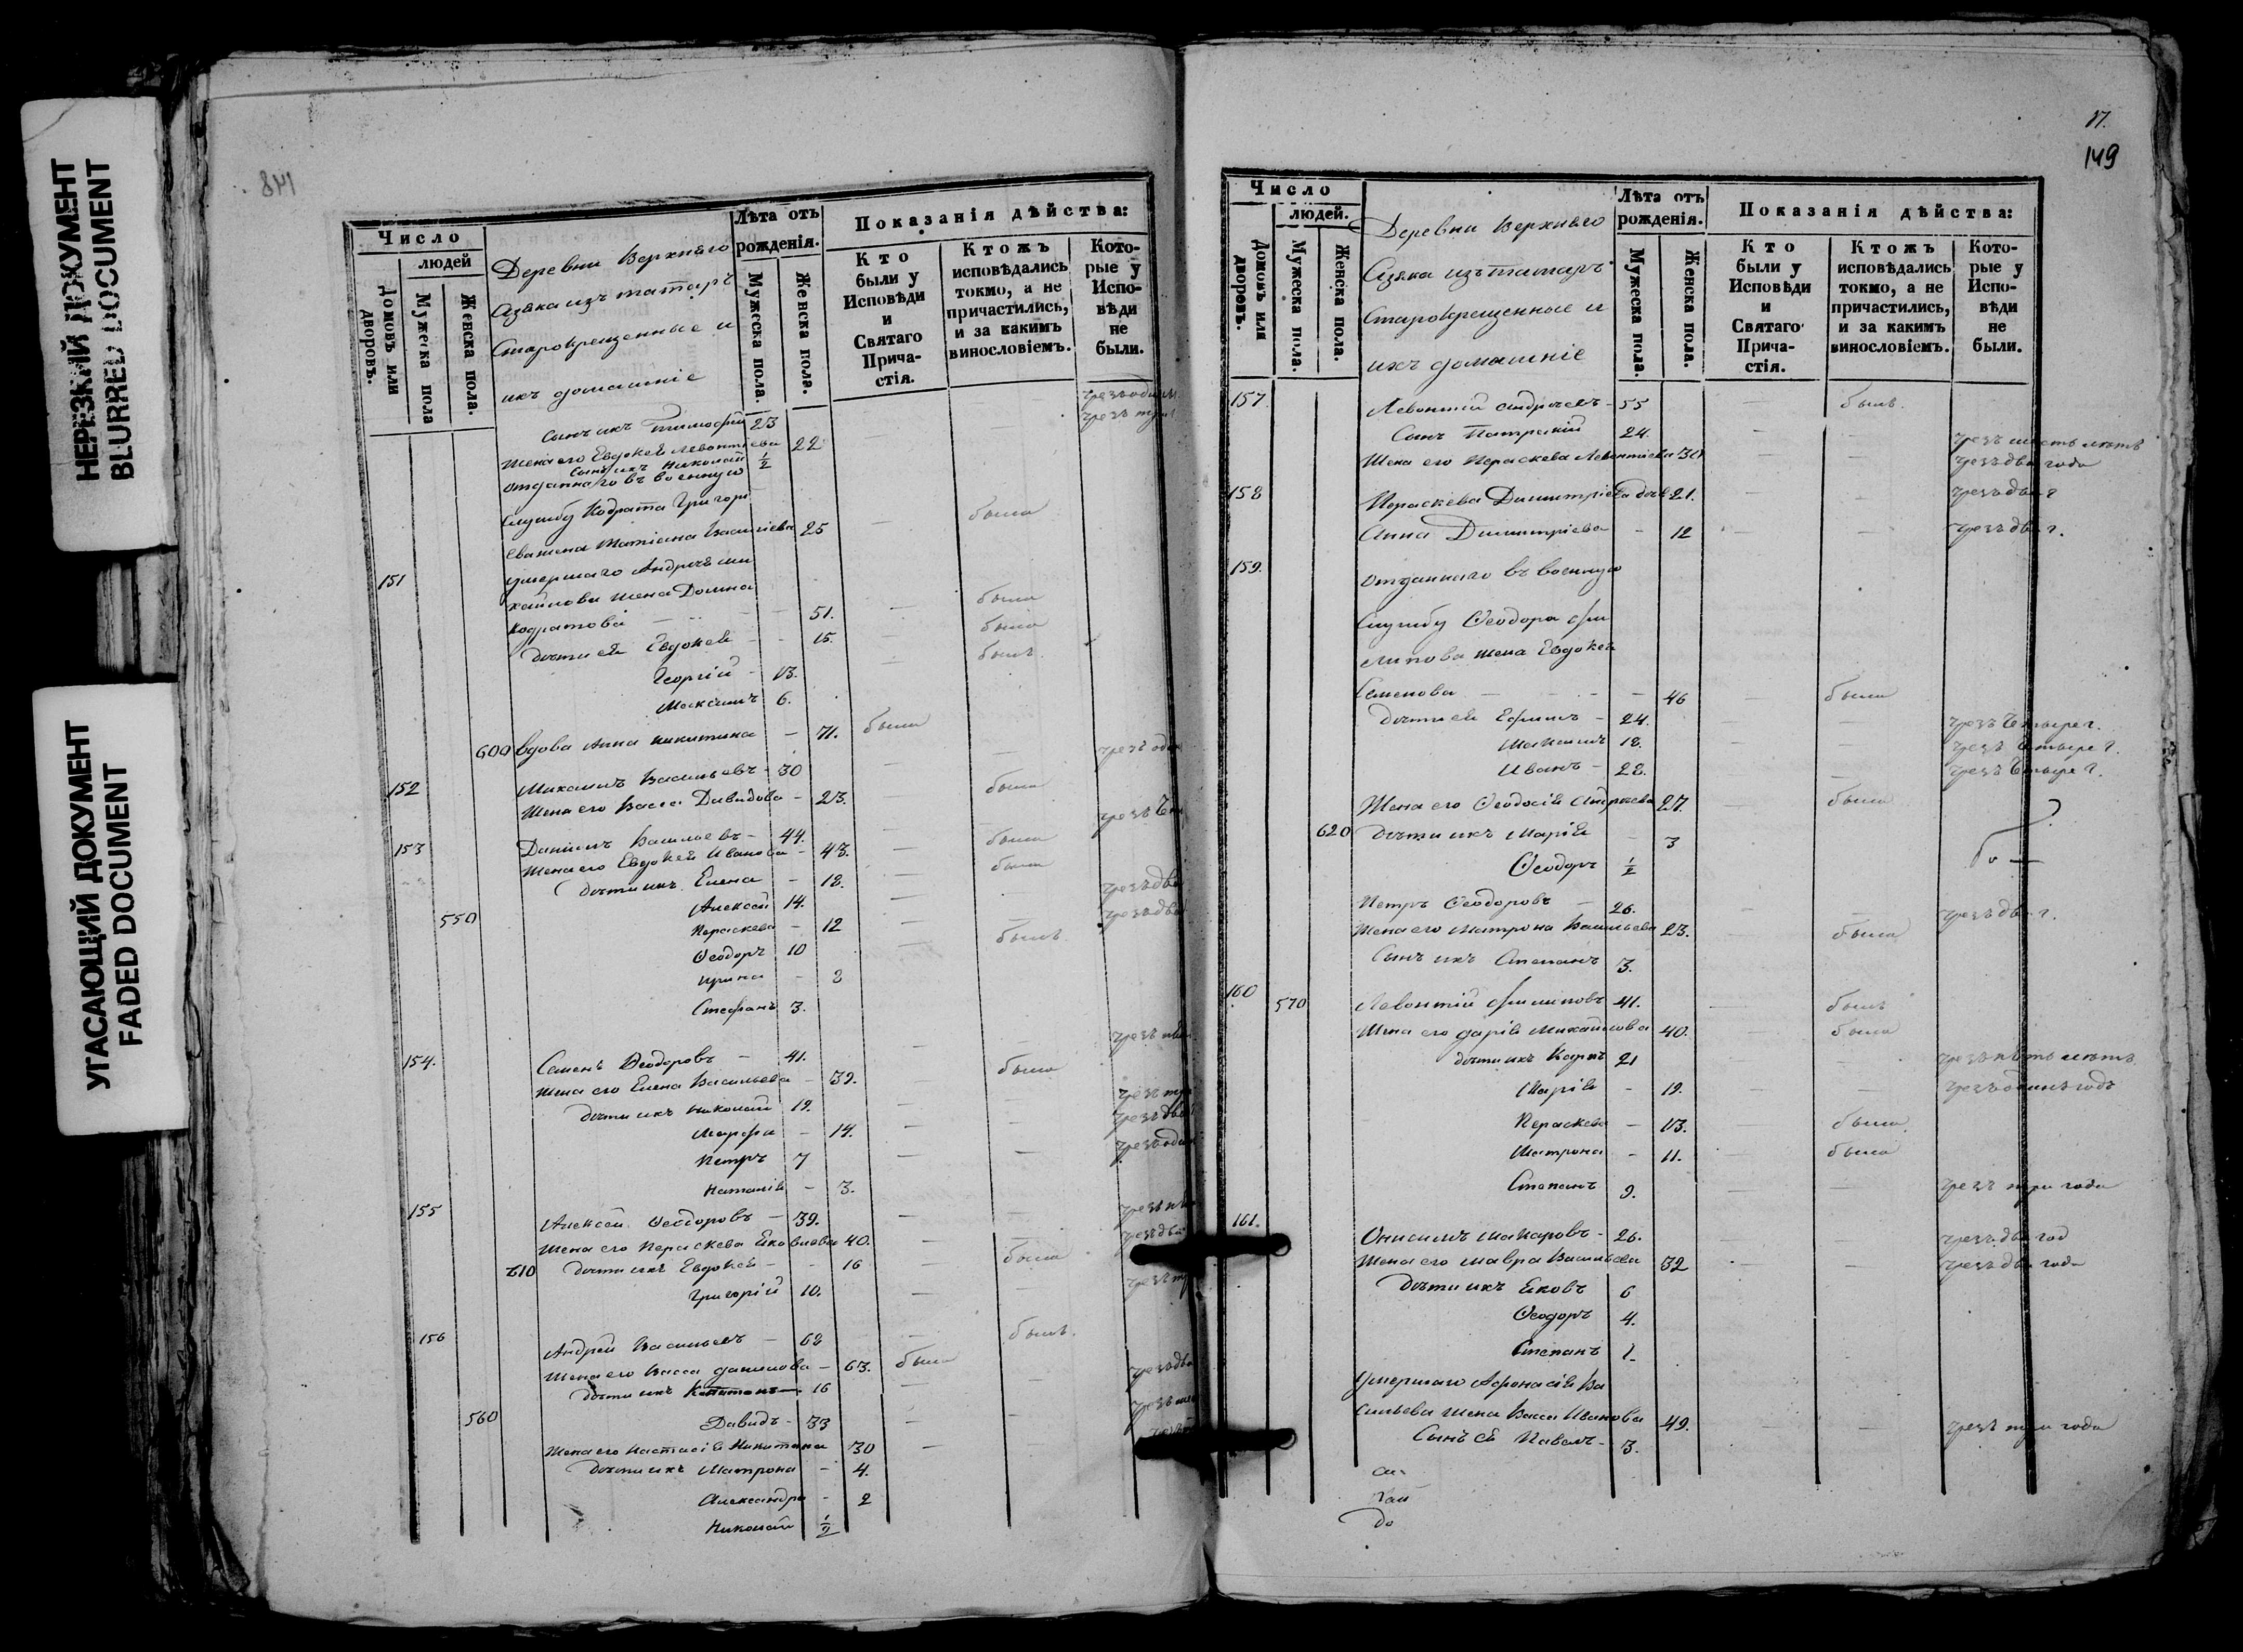 НЕРЕЗКИЙ ДОКУМЕНТ
BLURRED DOCUMENT
УГАСАЮЩИЙ ДОКУМЕНТ
FADED DOCUMENT
148
Число
людей
Домовъ или дворовъ.
Мужеска пола
Женска пола.
Деревни Верхняго
Азяка изъ татаръ
Старокрещенные и
ихъ домашніе
Лѣта отъ рожденія.
Мужеска пола.
Женска пола.
Показанія дѣйства:
Кто были у Исповѣди и Святаго Причастія.
Ктожъ исповѣдались токмо, а не причастились, и за какимъ винословіемъ.
Которые у Исповѣди не были.
Сынъ ихъ Тимофей 23
Жена его Евдокея Левонтьева 22
Сынъ ихъ Николай 1/2
отданнаго въ военную
службу Кодрата Григорь
ева жена Татіана Васильева 25 была
151 умершаго Андрея Ми
хайлова жена Домна
Кодратова 51. была
дѣти ея Евдокея 15. была
Георгій 13. былъ
Максимъ 6.
600 вдова Анна Никитина 71. была
152 Михаилъ Васильевъ 30
Жена его Васса Давидова 23. была
153 Даніилъ Васильевъ 44.
Жена его Евдокея Иванова 43. была
дѣти ихъ Елена 18. была
Алексей 14.
550 Пераскева 12
Ѳеодоръ 10 былъ
Ирина
Стефанъ 3.
154. Семенъ Ѳеодоровъ 41.
Жена его Елена Васильева 39. была
дѣти ихъ Николай 19.
Марфа 14.
Петръ 7
Наталія 3.
155 Алексей Ѳеодоровъ 39.
Жена его Пераскева Яковлева 40.
610 дѣти ихъ Евдокея 16 была
Григорій 10.
156 Андрей Васильевъ 62 былъ
Жена его Васса Данилова 63. была
дѣти ихъ Капитонъ 16
560 Давидъ 33
Жена его Настасія Никитина 30
дѣти ихъ Матрона 4.
Александра 2
Николай 1/2
17.
149
Число
людей.
Домовъ или дворовъ.
Мужеска пола.
Женска пола.
Деревни Верхняго
Азяка изъ татаръ
Старокрещенные и
ихъ домашніе
Лѣта отъ рожденія.
Мужеска пола.
Женска пола.
Показанія дѣйства:
Кто были у Исповѣди и Святаго Причастія.
Ктожъ исповѣдались токмо, а не причастились, и за какимъ винословіемъ.
Которые у Исповѣди не были.
157 Левонтій Андреевъ 55 былъ
Сынъ Патрекій 24. чрезъ шесть лѣтъ
Жена его Пераскева Левонтіева 30 чрезъ два года
158 Пераскева Димитріева 21. чрезъ два г
Анна Димитріева 12 чрезъ два г.
159. отданнаго въ военную
службу Ѳеодора Фи
липова жена Евдокея
Семенова 46 была
дѣти ея Ефимъ 24. чрезъ четыре г.
Максимъ 18. чрезъ четыре г.
Иванъ 28. чрезъ четыре г.
Жена его Ѳеодосія Андреева 27. была
620 дѣти ихъ Марія 3
Ѳеодоръ 1/2
Петръ Ѳеодоровъ 26. чрезъ два г.
Жена его Матрона Васильева 23. была
Сынъ ихъ Степанъ 3.
160 570 Левонтій Филиповъ 41. былъ
Жена его Дарія Михайлова 40. была
дѣти ихъ Карпъ 21 чрезъ пять лѣтъ
Марія 19. чрезъ одинъ годъ
Пераскева 13. была
Матрона 11. была
Степанъ 9. чрезъ три года
161. Онисимъ Макаровъ 26. чрезъ два год
Жена его Мавра Васильева 32 чрезъ два года
дѣти ихъ Яковъ 6
Ѳеодоръ 4.
Степанъ 1.
умершаго Афонасія Ва
сильева жена Васса Иванова 49. чрезъ три года
Сынъ ея Павелъ 3.